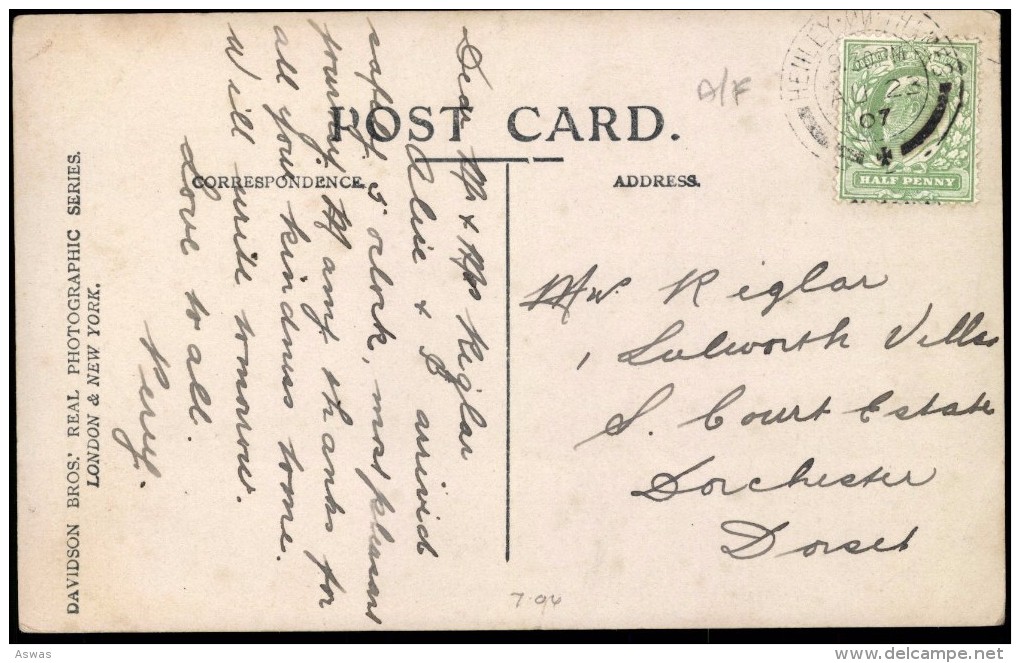 POST CARD.
CORRESPONDENCE.
ADDRESS.
HENLEY-ON-THAMES
23
07
HALF PENNY
A/F
Dear Mr & Mrs Riglar
Elsie & I arrivid
safely 5 oclock, most pleasant
journey. Many thanks for
all your kindness to me.
Will write tomorrow.
Love to all.
Percy.
Mr. Riglar
1, Lulworth Villas
S. Court Estate
Dorchester
Dorset
7.94
DAVIDSON BROS.' REAL PHOTOGRAPHIC SERIES.
LONDON & NEW YORK.
Aswas
delcampe.net